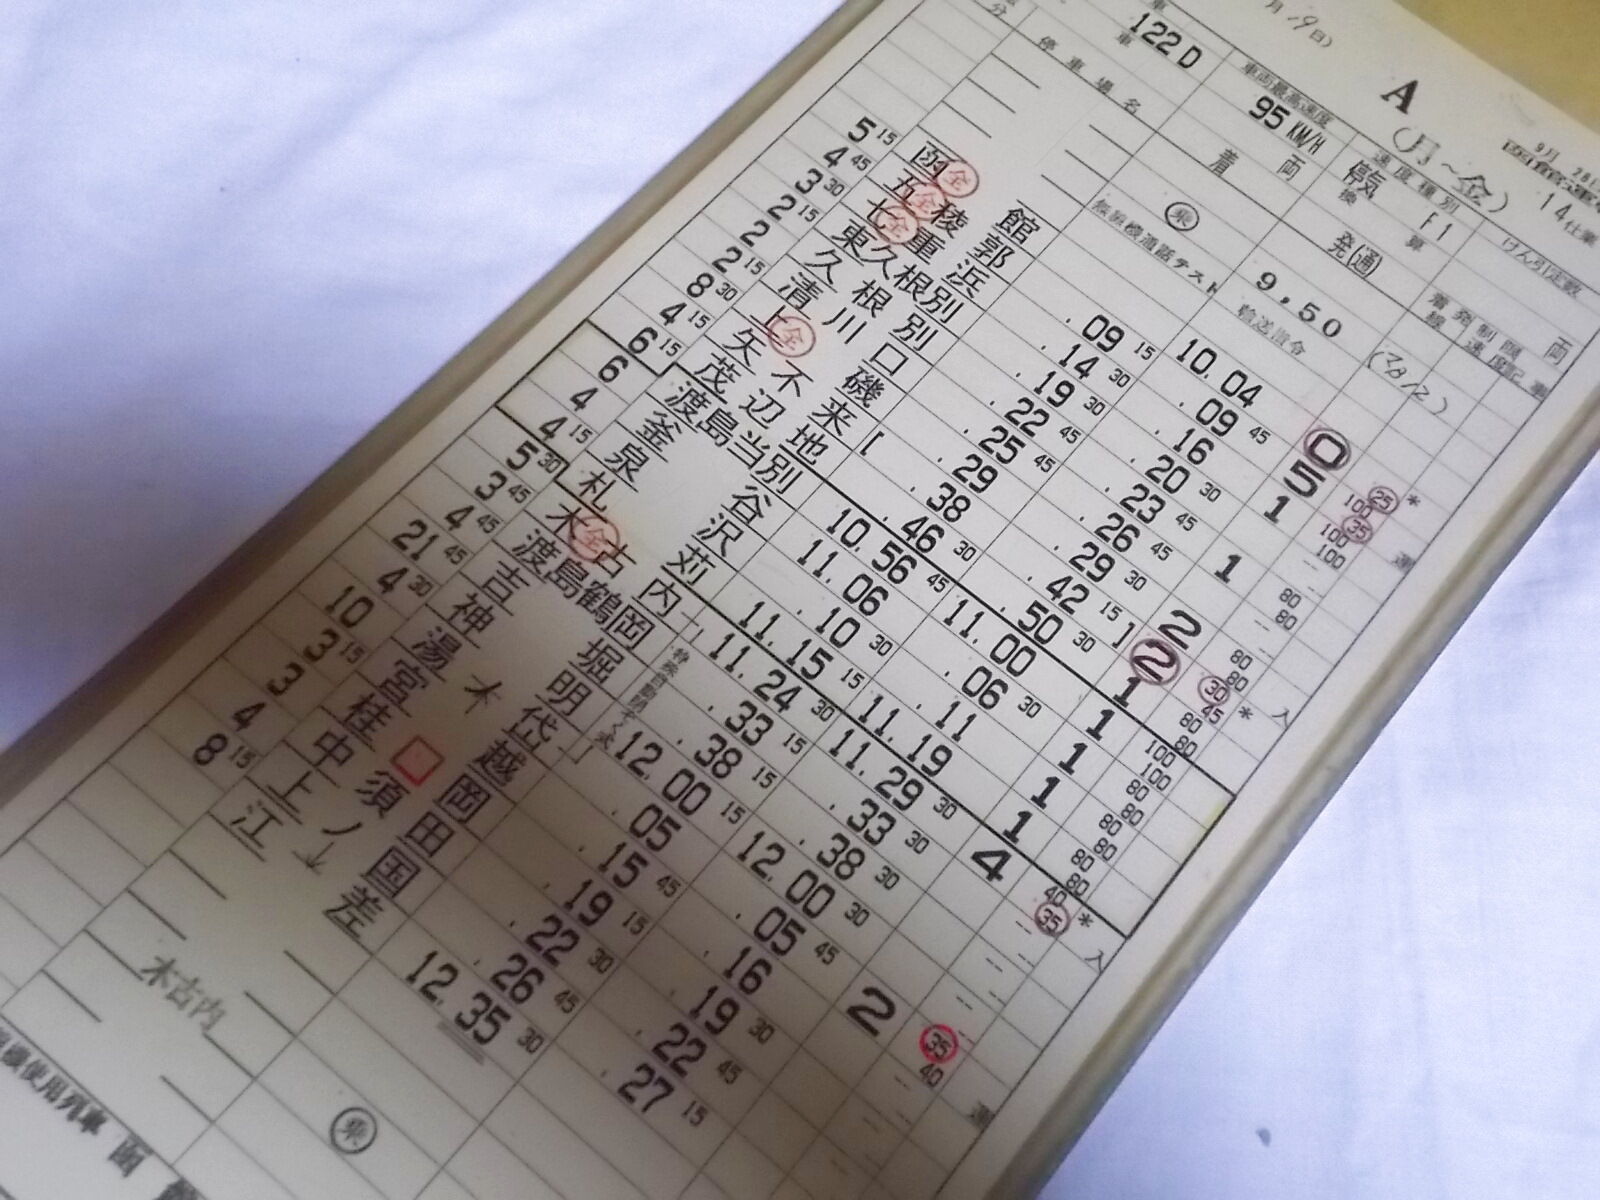 月 19日)
A
(月～金)
122D
車両最高速度
95 KM/H
速度種別
停気 F1
14仕業
けん引定数
停車場名
着
両
発(通)
換算
両
着発線
制限速度
記事
乗
9,50
無線機通話テスト
輸送指令
5 15 函館 全 10.04 0 25 *
4 45 五稜郭 全 .09 15 .09 45 5 100 35
3 30 七重浜 全 .14 30 .16 1 100
2 15 東久根別 .19 30 .20 30 100
2 久根別 .22 45 .23 45 1
2 15 清川口 .25 45 .26 45 80
8 30 上磯 全 .29 .29 30 2 80
4 15 矢不来 [ .38 .42 15 ] 2 80 30 *
6 15 茂辺地 .46 30 .50 30 1 80 45
6 渡島当別 10.56 45 11.00 1 80
4 釜谷 11.06 .06 30 1 100
4 15 泉沢 .10 30 .11 1 80
5 30 札苅 11.15 15 11.19 80
3 45 木古内 全 11.24 30 11.29 30 4 40 35 *
4 45 渡島鶴岡 .33 15 .33 30
21 45 吉堀 .38 15 .38 30
4 30 神明 12.00 15 12.00 30
10 湯ノ岱 .05 .05 45 2
3 15 宮越 .15 45 .16 35
3 桂岡 .19 15 .19 30 40
4 中須田 .22 30 .22 45
8 15 上ノ国 .26 45 .27 15
江差 12.35 30
木古内
乗
機使用列車